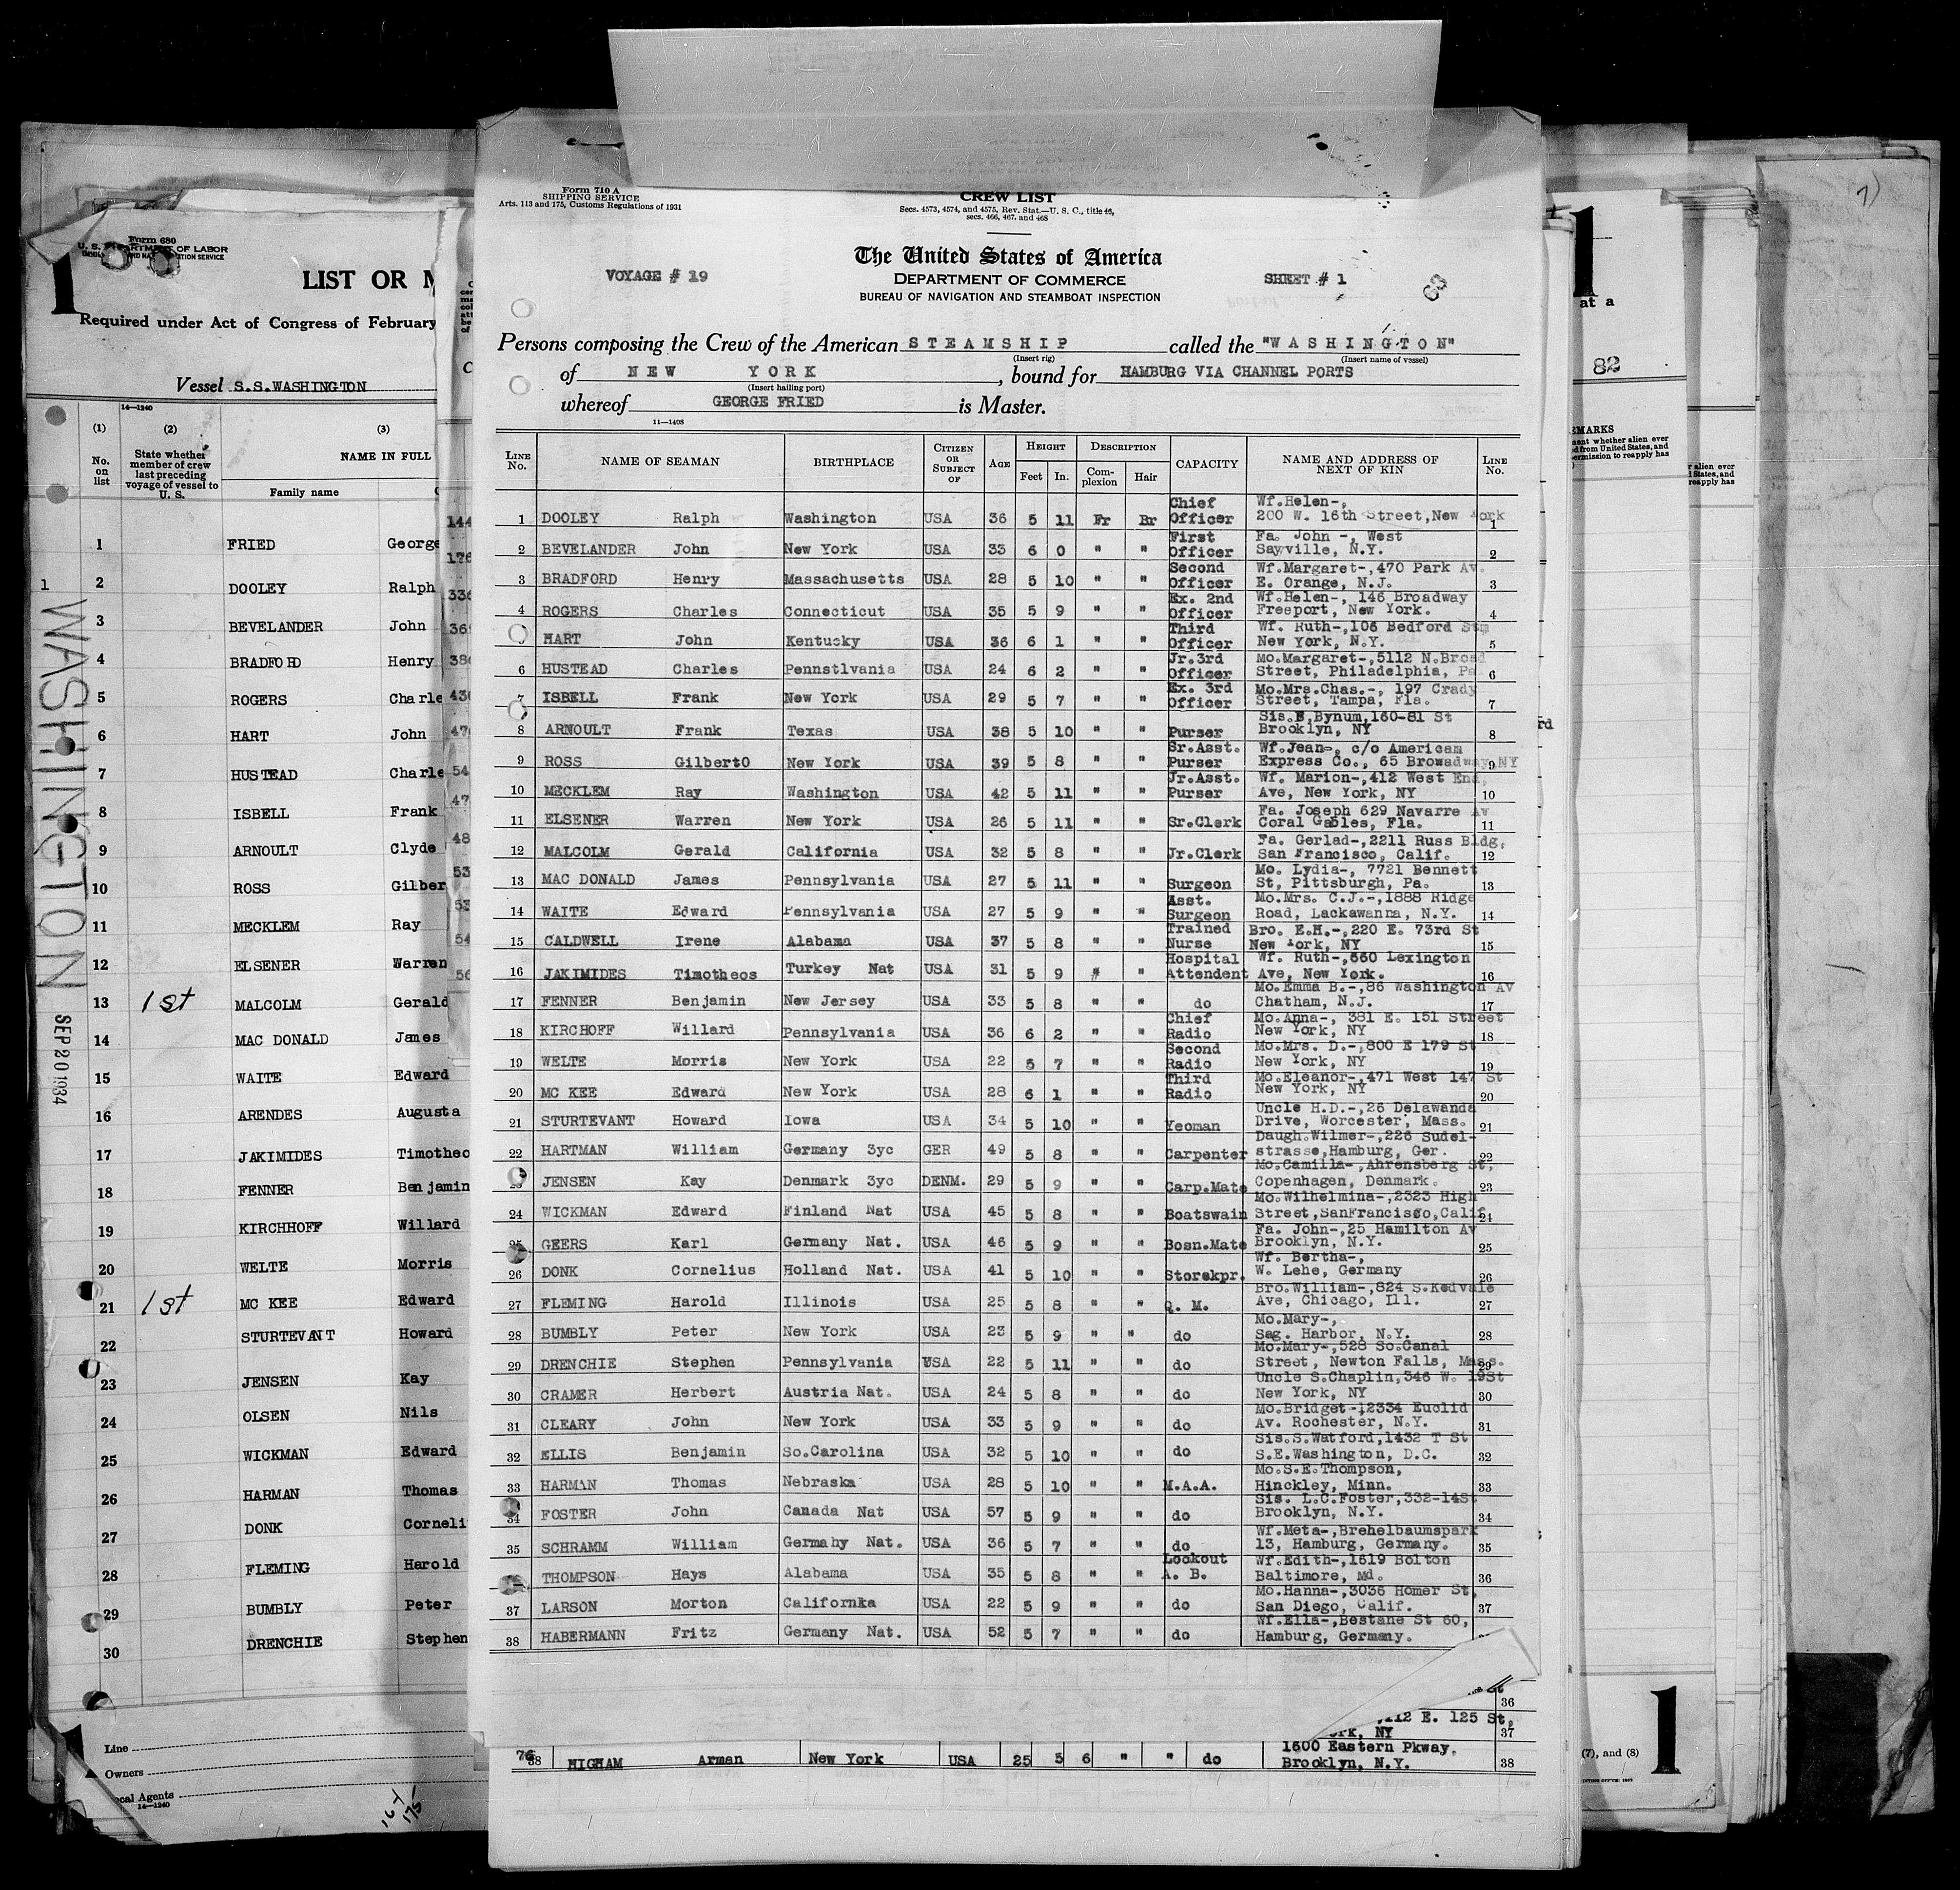 Form 680
U. S. DEPARTMENT OF LABOR
1
LIST OR M
Required under Act of Congress of February
Vessel S.S.WASHINGTON
14—1240
(1) (2) (3)
No. on list
State whether member of crew last preceding voyage of vessel to U. S.
NAME IN FULL
Family name
1 FRIED George
1 2 DOOLEY Ralph
3 BEVELANDER John
4 BRADFORD Henry
5 ROGERS Charle
6 HART John
7 HUSTEAD Charle
8 ISBELL Frank
9 ARNOULT Clyde
10 ROSS Gilber
11 MECKLEM Ray
12 ELSENER Warren
13 1st MALCOLM Gerald
14 MAC DONALD James
15 WAITE Edward
16 ARENDES Augusta
17 JAKIMIDES Timotheo
18 FENNER Benjamin
19 KIRCHHOFF Willard
20 WELTE Morris
21 1st MC KEE Edward
22 STURTEVANT Howard
23 JENSEN Kay
24 OLSEN Nils
25 WICKMAN Edward
26 HARMAN Thomas
27 DONK Corneli
28 FLEMING Harold
29 BUMBLY Peter
30 DRENCHIE Stephen
WASHINGTON
SEP 20 1934
Line
Owners
ocal Agents
14—1240
Form 710 A
SHIPPING SERVICE
Arts. 113 and 175, Customs Regulations of 1931
CREW LIST
Secs. 4573, 4574, and 4575, Rev. Stat.—U. S. C., title 46,
secs. 466, 467, and 468
The United States of America
VOYAGE # 19
DEPARTMENT OF COMMERCE
SHEET # 1
BUREAU OF NAVIGATION AND STEAMBOAT INSPECTION
Persons composing the Crew of the American STEAMSHIP called the "WASHINGTON"
(Insert rig) (Insert name of vessel)
of NEW YORK, bound for HAMBURG VIA CHANNEL PORTS
(Insert hailing port)
whereof GEORGE FRIED is Master.
11—1408
LINE No. NAME OF SEAMAN BIRTHPLACE CITIZEN OR SUBJECT OF AGE HEIGHT Feet In. DESCRIPTION Complexion Hair CAPACITY NAME AND ADDRESS OF NEXT OF KIN LINE No.
1 DOOLEY Ralph Washington USA 36 5 11 Fr Br Chief Officer Wf.Helen-, 200 W. 16th Street,New York 1
2 BEVELANDER John New York USA 33 6 0 " " First Officer Fa. John -, West Sayville, N.Y. 2
3 BRADFORD Henry Massachusetts USA 28 5 10 " " Second Officer Wf.Margaret-,470 Park Av. E. Orange, N.J. 3
4 ROGERS Charles Connecticut USA 35 5 9 " " Ex. 2nd Officer Wf.Helen-, 146 Broadway Freeport, New York. 4
HART John Kentucky USA 36 6 1 " " Third Officer Wf. Ruth-,106 Bedford Stm New York, N.Y. 5
6 HUSTEAD Charles Pennstlvania USA 24 6 2 " " Jr.3rd Officer Mo.Margaret-,5112 N.Broad Street, Philadelphia, Pa 6
7 ISBELL Frank New York USA 29 5 7 " " Ex. 3rd Officer Mo.Mrs.Chas.-, 197 Crady Street, Tampa, Fla. 7
8 ARNOULT Frank Texas USA 38 5 10 " " Purser Sis.E,Bynum,160-81 St Brooklyn, NY 8
9 ROSS GilbertO New York USA 39 5 8 " " Sr.Asst. Purser Wf.Jean-, c/o American Express Co., 65 Browadway,NY 9
10 MECKLEM Ray Washington USA 42 5 11 " " Jr.Asst. Purser Wf. Marion-,412 West End, Ave, New York, NY 10
11 ELSENER Warren New York USA 26 5 11 " " Sr.Clerk Fa. Joseph 629 Navarre Av Coral Gables, Fla. 11
12 MALCOLM Gerald California USA 32 5 8 " " Jr.Clerk Fa. Gerlad-,2211 Russ Bldg, San Francisco, Calif. 12
13 MAC DONALD James Pennsylvania USA 27 5 11 " " Surgeon Mo. Lydia-, 7721 Bennett St, Pittsburgh, Pa. 13
14 WAITE Edward Pennsylvania USA 27 5 9 " " Asst. Surgeon Mo.Mrs. C.J.-,1888 Ridge Road, Lackawanna, N.Y. 14
15 CALDWELL Irene Alabama USA 37 5 8 " " Trained Nurse Bro. E.H.-,220 E. 73rd St New York, NY 15
16 JAKIMIDES Timotheos Turkey Nat USA 31 5 9 " " Hospital Attendent Wf. Ruth-,560 Lexington Ave, New York. 16
17 FENNER Benjamin New Jersey USA 33 5 8 " " do Mo.Emma B.-,86 Washington Av Chatham, N.J. 17
18 KIRCHOFF Willard Pennsylvania USA 36 6 2 " " Chief Radio Mo.Anna-, 381 E. 151 Street New York, NY 18
19 WELTE Morris New York USA 22 5 7 " " Second Radio Mo.Mrs. D.-,800 E 179 St New York, NY 19
20 MC KEE Edward New York USA 28 6 1 " " Third Radio Mo.Eleanor-,471 West 147 St New York, NY 20
21 STURTEVANT Howard Iowa USA 34 5 10 " " Yeoman Uncle H.D.-,26 Delawanda Drive, Worcester, Mass. 21
22 HARTMAN William Germany 3yc GER 49 5 8 " " Carpenter Daugh.Wilmer-,226 Sudel-strasse,Hamburg, Ger. 22
23 JENSEN Kay Denmark 3yc DENM. 29 5 9 " " Carp.Mate Mo.Camilla-,Ahrensberg St, Copenhagen, Denmark. 23
24 WICKMAN Edward Finland Nat USA 45 5 8 " " Boatswain Mo.Wilhelmina-,2323 High Street,SanFrancisco,Calif. 24
25 GEERS Karl Germany Nat. USA 46 5 9 " " Bosn.Mate Fa. John-,25 Hamilton Av Brooklyn, N.Y. 25
26 DONK Cornelius Holland Nat. USA 41 5 10 " " Storekpr. Wf. Bertha-, W. Lehe, Germany 26
27 FLEMING Harold Illinois USA 25 5 8 " " Q. M. Bro.William-,824 S.Kedvale Ave, Chicago, Ill. 27
28 BUMBLY Peter New York USA 23 5 9 " " do Mo.Mary-, Sag. Harbor, N.Y. 28
29 DRENCHIE Stephen Pennsylvania USA 22 5 11 " " do Mo.Mary-,528 So.Canal Street, Newton Falls, Mass. 29
30 CRAMER Herbert Austria Nat. USA 24 5 8 " " do Uncle S.Chaplin,346 W. 19St New York, NY 30
31 CLEARY John New York USA 33 5 9 " " do Mo.Bridget-,2334 Euclid Av. Rochester, N.Y. 31
32 ELLIS Benjamin So.Carolina USA 32 5 10 " " do Sis.S.Watford,1432 T St S.E.Washington, D.C. 32
33 HARMAN Thomas Nebraska USA 28 5 10 " " M.A.A. Mo.S.E.Thompson, Hinckley, Minn. 33
34 FOSTER John Canada Nat USA 57 5 9 " " do Sis. L.C.Foster,332-14St Brooklyn, N.Y. 34
35 SCHRAMM William Germahy Nat. USA 36 5 7 " " do Wf.Meta-,Brehelbaumspark 13, Hamburg, Germany. 35
THOMPSON Hays Alabama USA 35 5 8 " " Lookout A. B. Wf.Edith-,1619 Bolton Baltimore, Md. 36
37 LARSON Morton Californka USA 22 5 9 " " do Mo.Hanna-,3036 Homer St, San Diego, Calif. 37
38 HABERMANN Fritz Germany Nat. USA 52 5 7 " " do Wf.Ella-,Bestane St 60, Hamburg, Germany.
36
,112 E. 125 St,
ork, NY 37
76 38 HIGHAM Arman New York USA 25 5 6 " " do 1600 Eastern Pkway. Brooklyn, N.Y. 38
1
at a
82
EMARKS
(7), and (8)
1